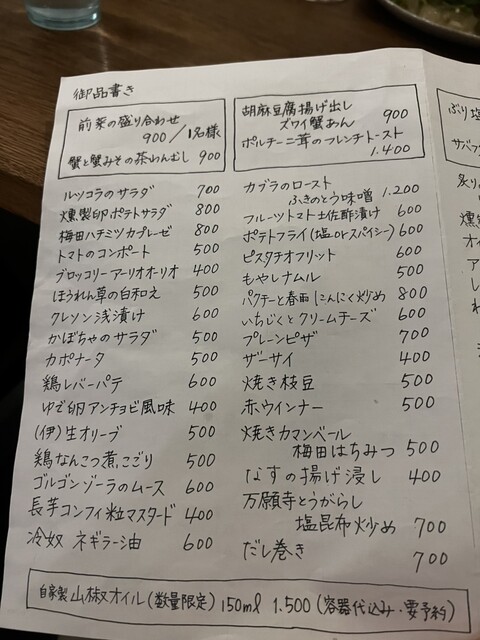 御品書き
前菜の盛り合わせ
900/1名様
蟹と蟹みその茶わんむし 900
胡麻豆腐揚げ出し
ズワイ蟹あん 900
ポルチーニ茸のフレンチトースト
1.400
ルッコラのサラダ 700
燻製卵ポテトサラダ 800
梅田ハチミツカプレーゼ 800
トマトのコンポート 500
ブロッコリーアーリオオーリオ 400
ほうれん草の白和え 500
クレソン浅漬け 600
かぼちゃのサラダ 500
カポナータ 500
鶏レバーパテ 600
ゆで卵アンチョビ風味 400
(伊)生オリーブ 500
鶏なんこつ煮こごり 500
ゴルゴンゾーラのムース 600
長芋コンフィ粒マスタード 400
冷奴 ネギラー油 600
カブラのロースト
ふきのとう味噌 1.200
フルーツトマト土佐酢漬け 600
ポテトフライ(塩orスパイシー) 600
ピスタチオフリット 600
もやしナムル 500
パクチーと春雨にんにく炒め 800
いちじくとクリームチーズ 600
プレーンピザ 700
ザーサイ 400
焼き枝豆 500
赤ウインナー 500
焼きカマンベール
梅田はちみつ 500
なすの揚げ浸し 400
万願寺とうがらし
塩昆布炒め 700
だし巻き 700
自家製山椒オイル(数量限定) 150ml 1.500 (容器代込み・要予約)
ぶり塩
サバフ
炙り
燻製
オイ
ア
し
れ